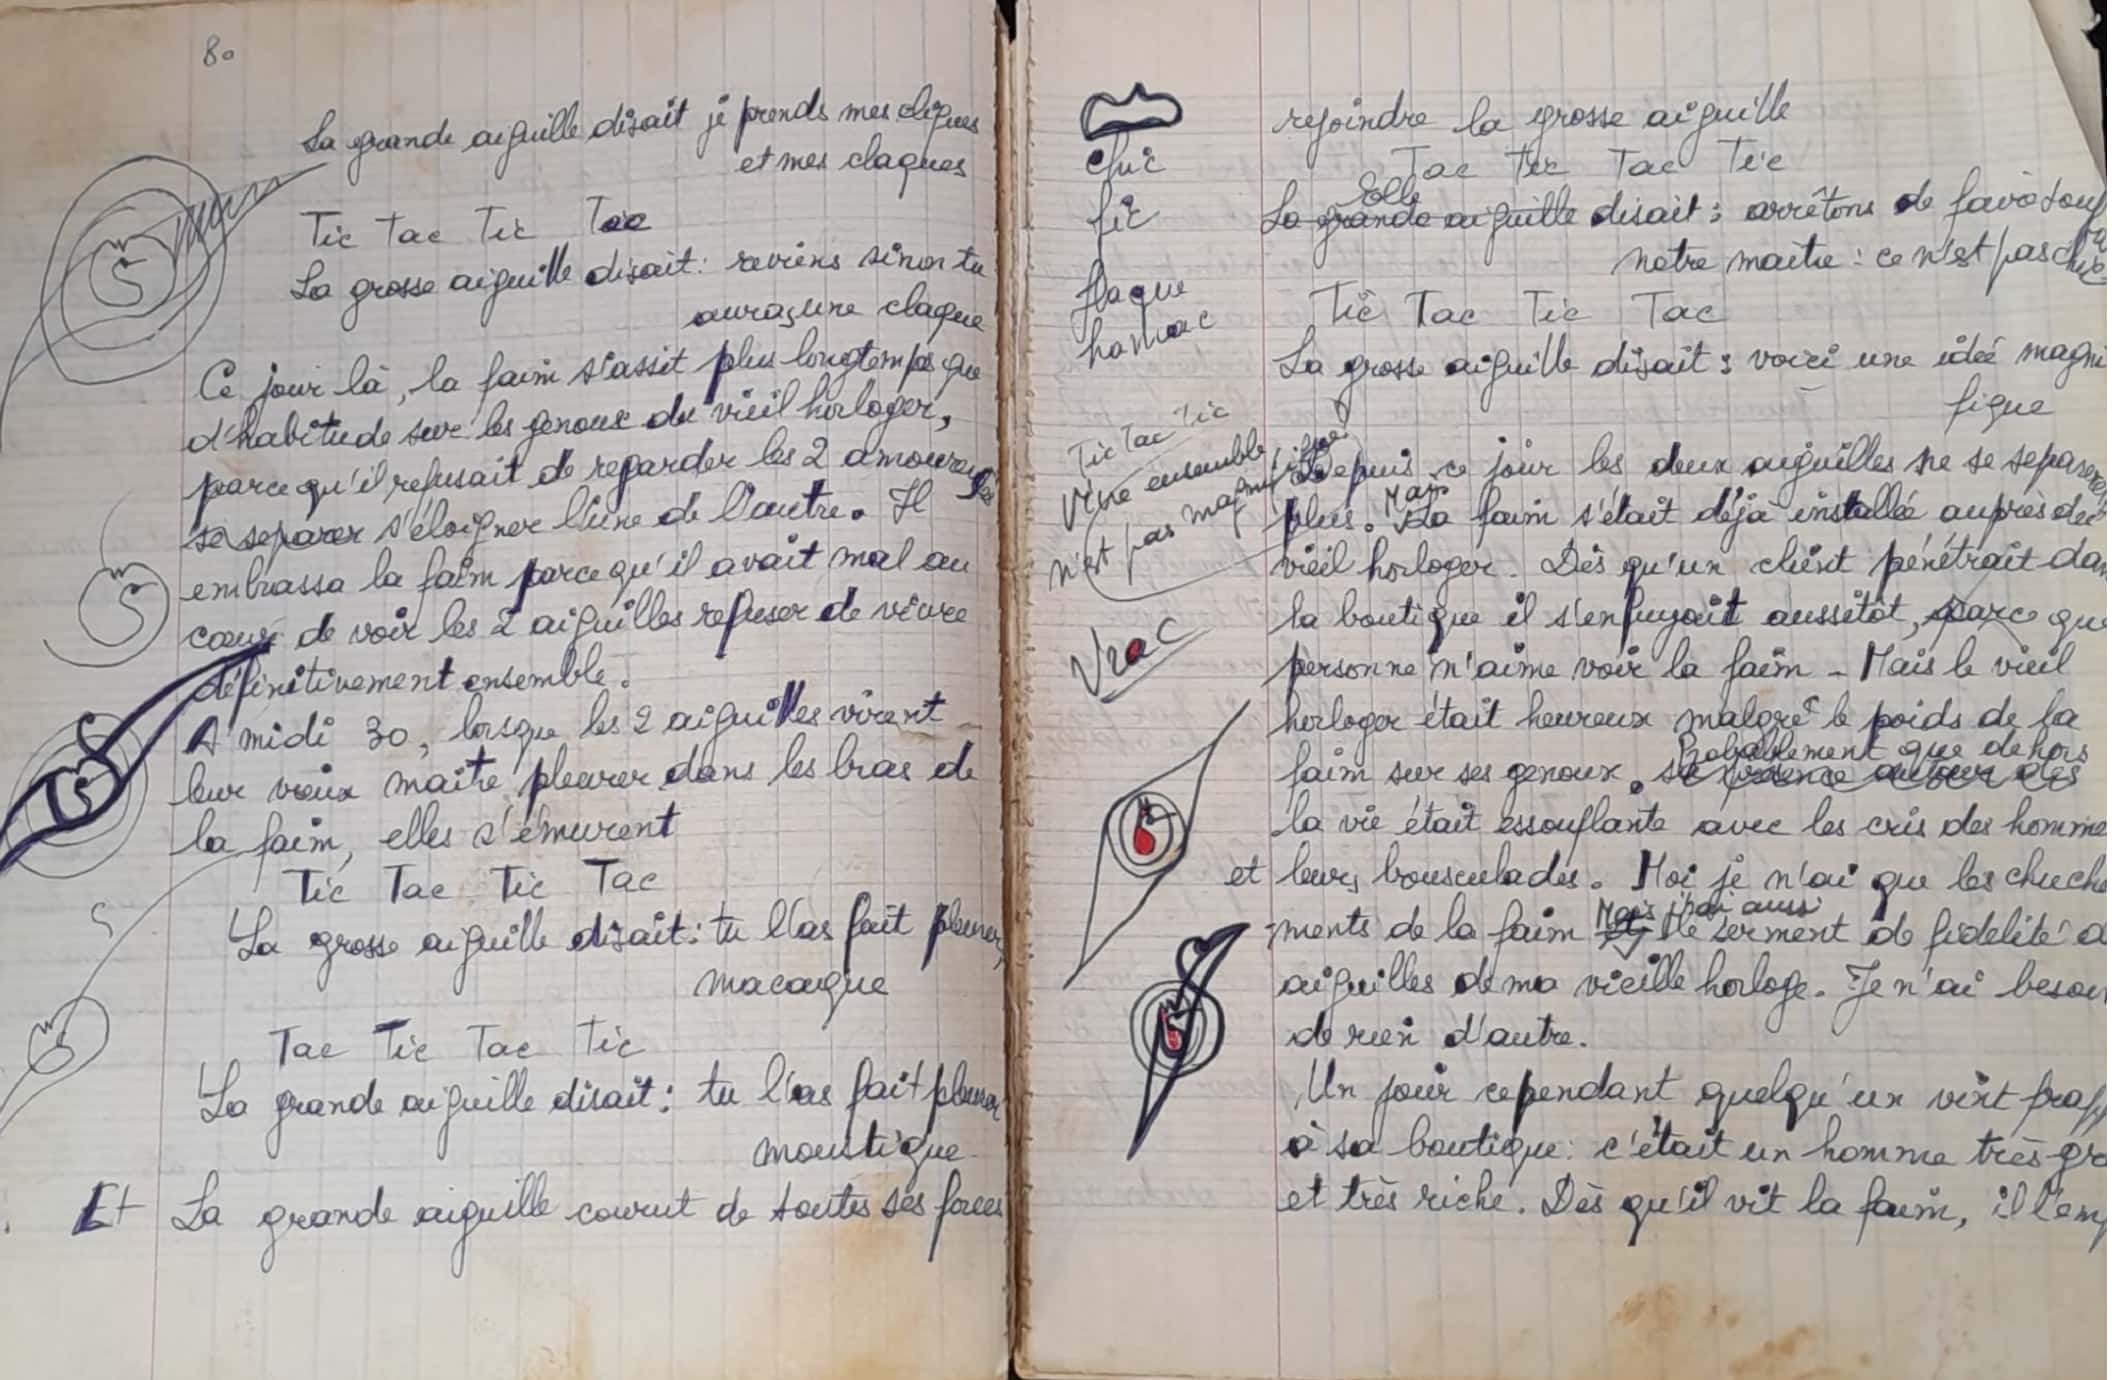 80
La grande aiguille disait je prends mes cliques
et mes claques
Tic Tac Tic Tac
La grosse aiguille disait : reviens sinon tu
auras une claque
Ce jour là, la faim s'assit plus longtemps que
d'habitude sur les genoux du vieil horloger,
parce qu'il refusait de regarder les 2 amoureuses
se separer s'éloigner l'une de l'autre. Il
embrassa la faim parce qu'il avait mal au
cœur de voir les 2 aiguilles refuser de vivre
définitivement ensemble.
A midi 30, lorsque les 2 aiguilles virent
leur vieux maitre pleurer dans les bras de
la faim, elles s'émurent
Tic Tac Tic Tac
La grosse aiguille disait : tu l'as fait pleurer,
macaque
Tac Tic Tac Tic
La grande aiguille disait : tu l'as fait pleurer
moustique
Et La grande aiguille courut de toutes ses forces
chic
fic
flaque
hamac
Tic Tac Tic
Vivre ensemble
n'est pas magnifique
Vrac
rejoindre la grosse aiguille
Tac Tic Tac Tic
Elle
La grande aiguille disait : arrêtons de faire
notre maitre : ce n'est pas chic
Tic Tac Tic Tac
La grosse aiguille disait : voici une idée magni
fique
Depuis ce jour les deux aiguilles ne se
Mais
plus. La faim s'était déjà installée auprès du
vieil horloger. Dès qu'un client pénétrait
la boutique il s'enfuyait aussitôt, parce que
personne n'aime voir la faim - Mais le vieil
horloger était heureux malgré le poids de la
Probablement que dehors
faim sur ses genoux.
la vie était essouflante avec les cris des
et leurs bousculades. Moi je n'ai que les
Mais j'ai aussi
ments de la faim le serment de fidelité
aiguilles de ma vieille horloge. Je n'ai
de rien d'autre.
Un jour cependant quelqu'un vint
à sa boutique : c'était un homme très
et très riche. Dès qu'il vit la faim, il